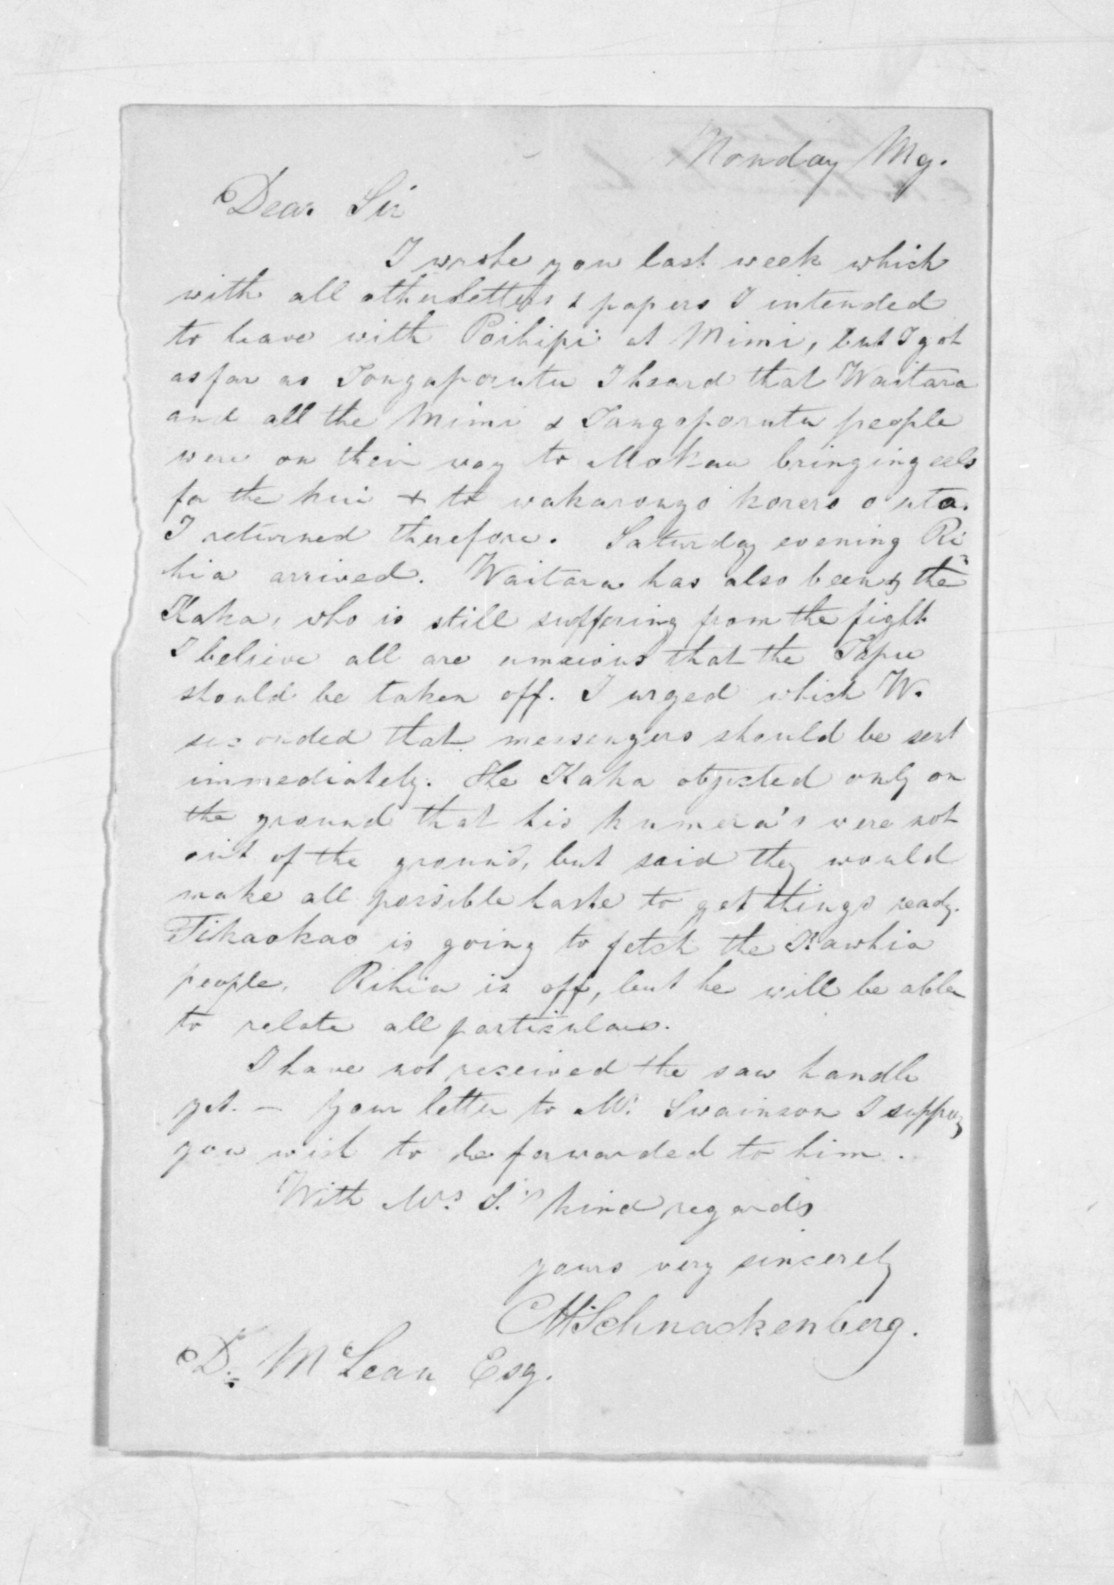 Monday Mg.
Dear Sir
I wrote you last week which
with all other letters & papers I intended
to leave with Poihipi at Mimi, but I got
as far as Tongaporutu I heard that Waitara
and all the Mimi & Tangoporutu people
were on their way to Mokau bringing eels
for the hui & to wakarongo korero o uta.
I returned therefore. Saturday evening Ri
hia arrived. Waitara has also been the
Kaka, who is still suffering from the fight
I believe all are anxious that the Tapu
should be taken off. I urged which W.
seconded that messengers should be sent
immediately. The Kaka objected only on
the ground that his kumera's were not
out of the ground, but said they would
make all possible haste to get things ready.
Tikaokao is going to fetch the Kawhia
people. Rihia is off, but he will be able
to relate all particulars.
I have not received the saw handle
yet. — Your letter to Mr. Swainson I suppose
you wish to be forwarded to him.
With Mrs. S.'s kind regards
yours very sincerely
CHSchnackenberg.
D. McLean Esq.